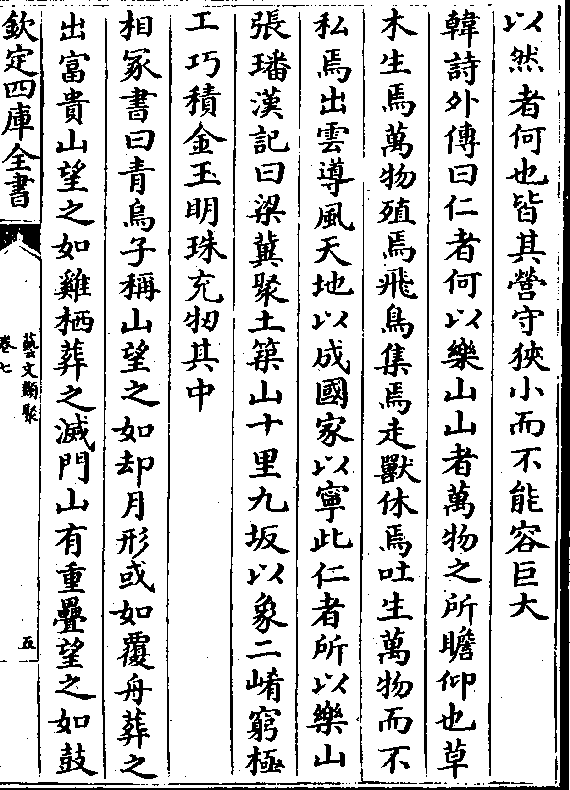 以然者何也皆其營守狹小而不能容巨大
韓詩外傳曰仁者何以樂山山者萬物之所瞻仰也草
木生焉萬物殖焉飛鳥集焉走獸休焉吐生萬物而不
私焉出雲導風天地以成國家以寧此仁者所以樂山
張璠漢記曰梁冀聚土築山十里九坂以象二崤窮極
工巧積金玉明珠充牣其中
相冢書曰青烏子稱山望之如却月形或如覆舟葬之
出富貴山望之如雞栖葬之滅門山有重疊望之如鼓
欽定四庫全書
藝文類聚
卷七
五